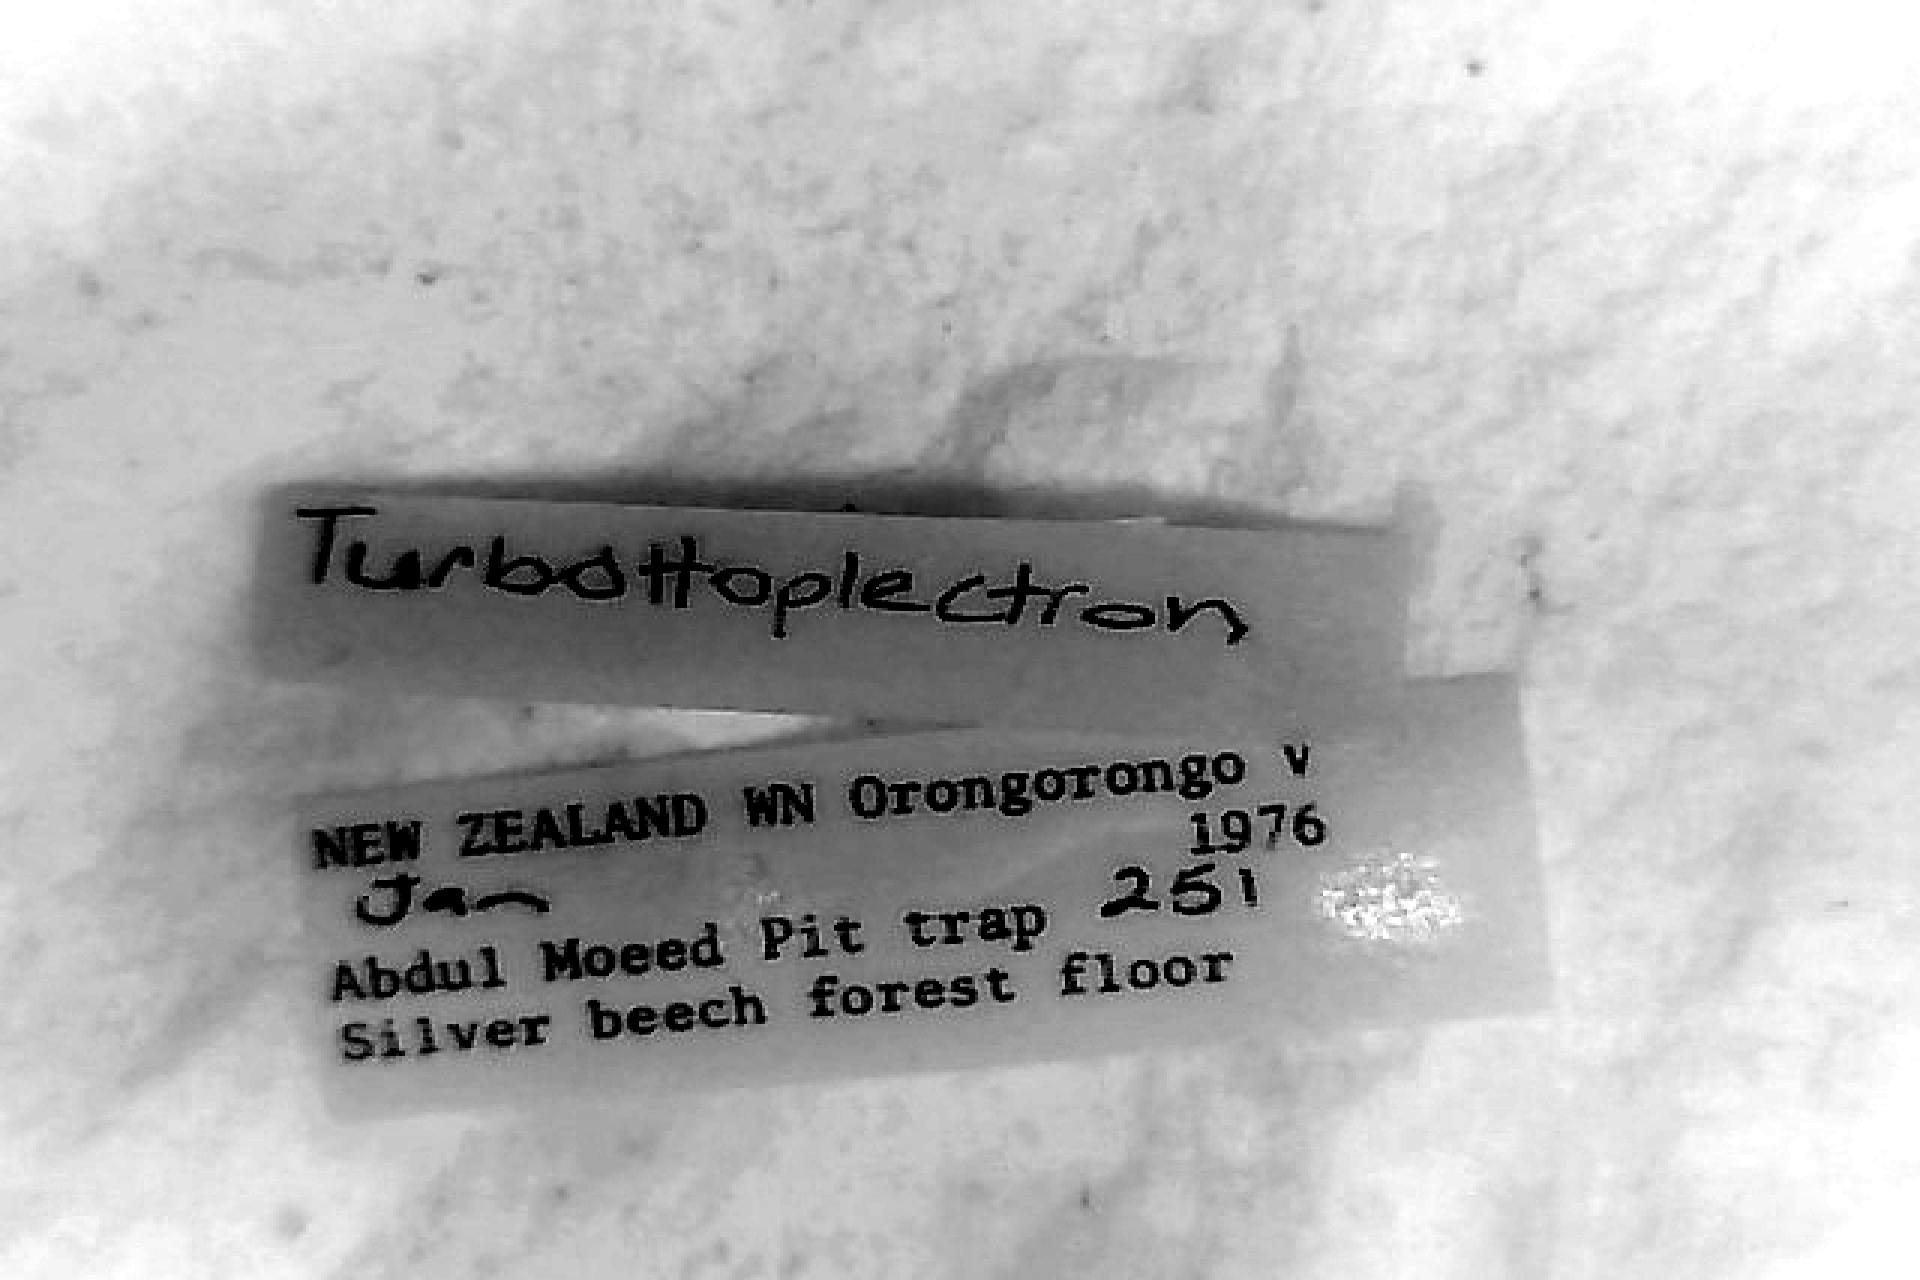 Turbottoplectron
NEW ZEALAND WN Orongorongo V
1976
Jan
Abdul Moeed Pit trap 251
Silver beech forest floor